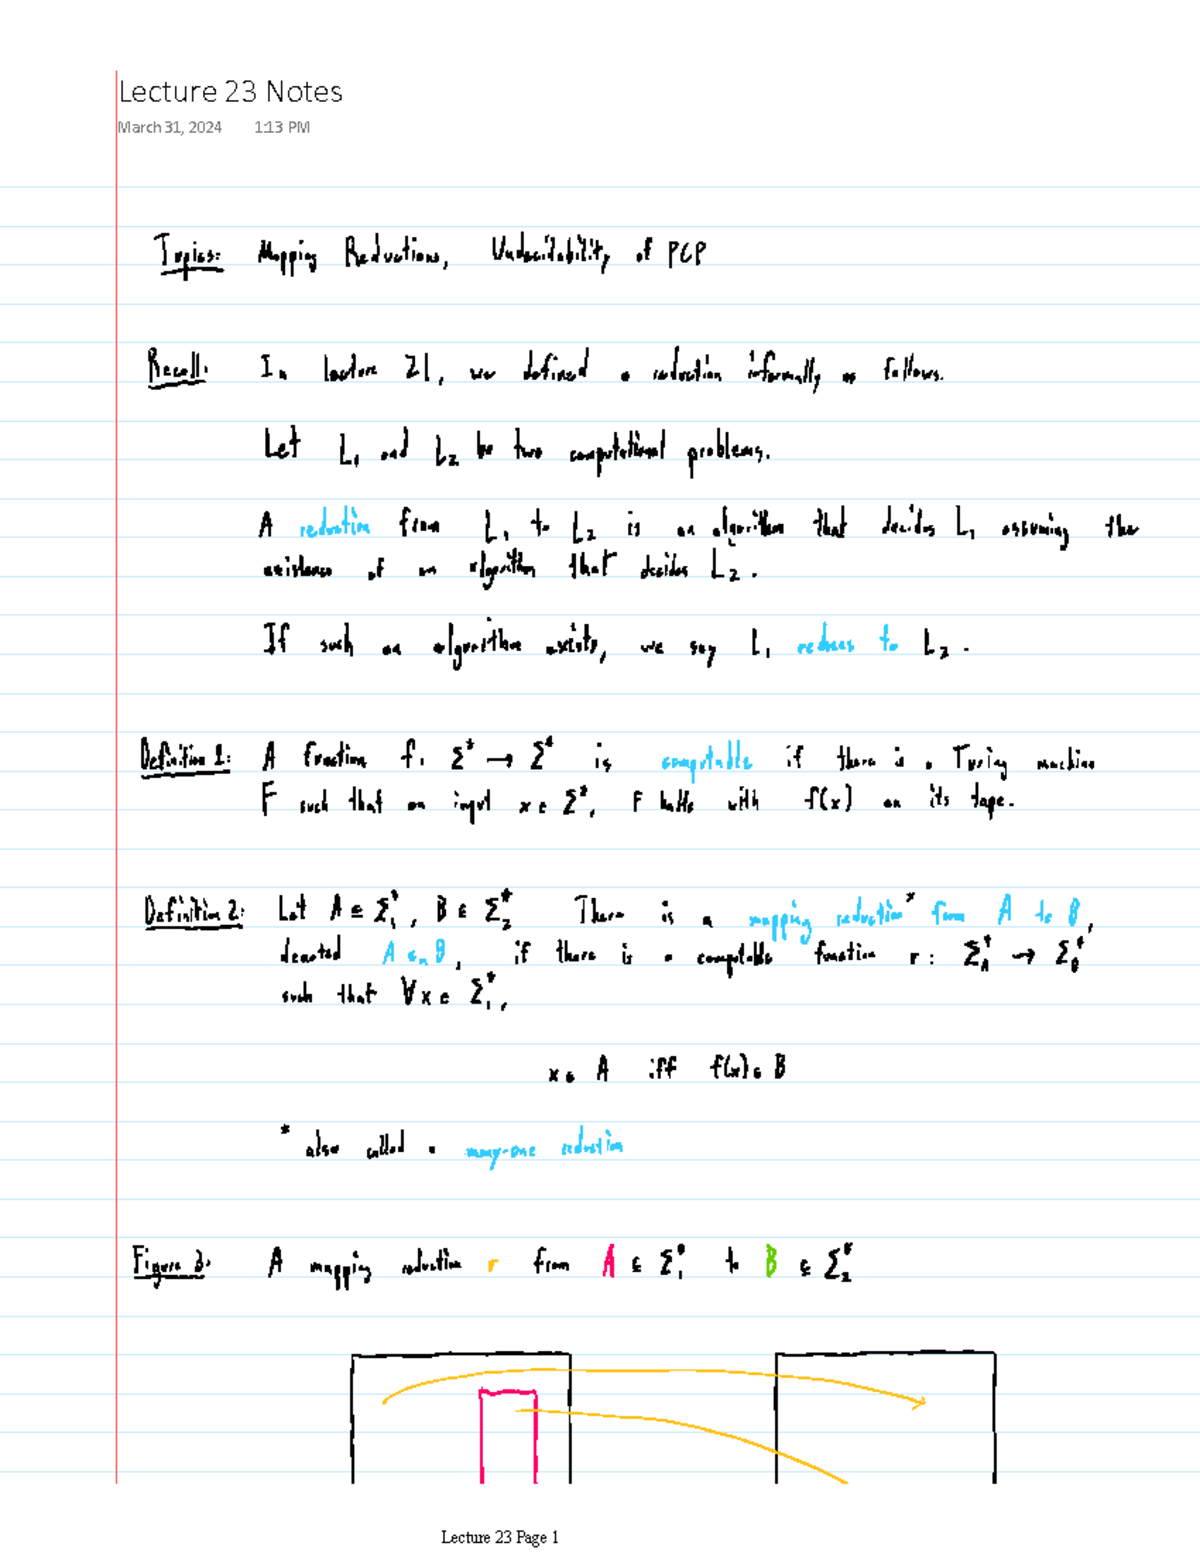 Lecture 23 Notes
March 31, 2024 1:13 PM
Topics: Mapping Reductions, Undecidability of PCP
Recall: In lecture 21, we defined a reduction informally as follows.
Let L₁ and L₂ be two computational problems.
A reduction from L₁ to L₂ is an algorithm that decides L₁ assuming the
existence of an algorithm that decides L₂.
If such an algorithm exists, we say L₁ reduces to L₂.
Definition 1: A function f: Σ* → Σ* is computable if there is a Turing machine
F such that on input x ∈ Σ*, F halts with f(x) on its tape.
Definition 2: Let A ⊆ Σ₁*, B ⊆ Σ₂* There is a mapping reduction* from A to B,
denoted A ≤ₘ B, if there is a computable function r: Σ_A* → Σ_B*
such that ∀x ∈ Σ₁*,
x ∈ A iff f(x) ∈ B
* also called a many-one reduction
Figure 3: A mapping reduction r from A ⊆ Σ₁* to B ⊆ Σ₂*
Lecture 23 Page 1